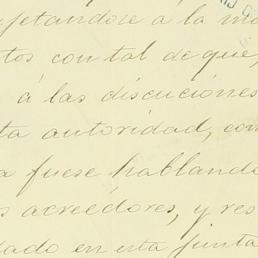 ujetandose á la ma
tos con tal de que,
á las discuciones
ta autoridad, com
a fuese hablando
s acreedores, y res
lado en esta junta